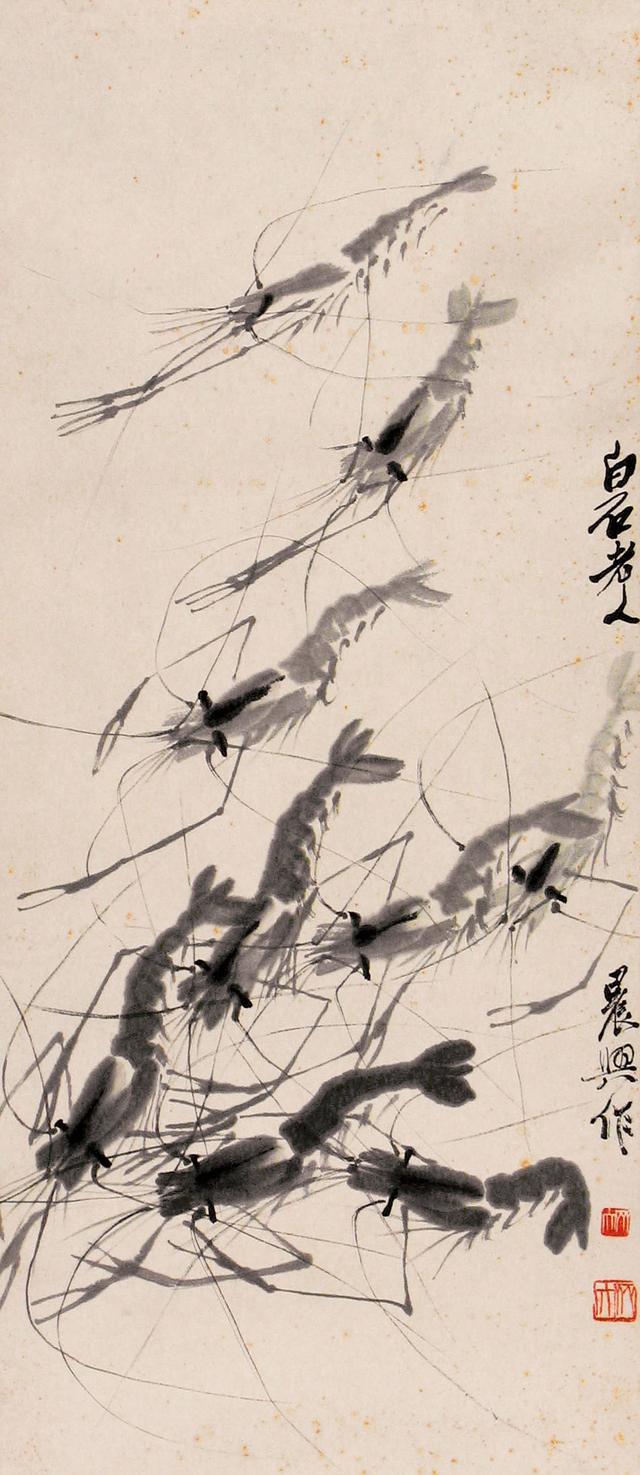 白石老人
晨興作